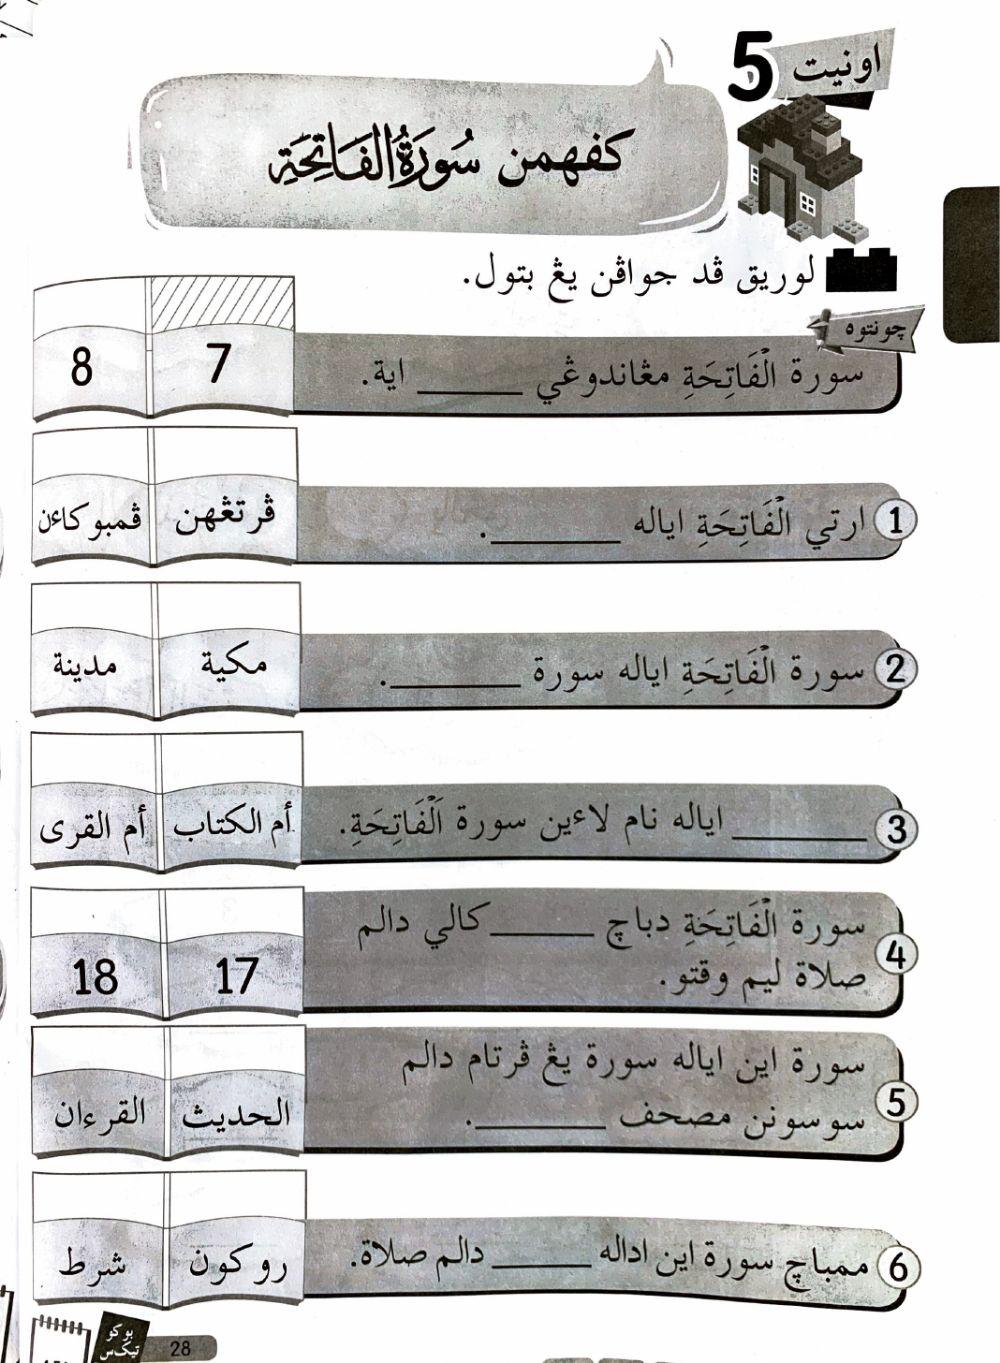 اونيت 5
كفهمن سُورَةُ الفَاتِحَةِ
لوريق ڤد جواڤن يڠ بتول.
چونتوه
سورة الْفَاتِحَةِ مڠاندوڠي ______ اية.
7
8
1 ارتي الْفَاتِحَةِ اياله ______.
ڤرتڠهن
ڤمبوكاءن
2 سورة الْفَاتِحَةِ اياله سورة ______.
مكية
مدينة
3 ______ اياله نام لاءين سورة اَلْفَاتِحَةِ.
أم الكتاب
أم القرى
4 سورة الْفَاتِحَةِ دباچ ______ كالي دالم
صلاة ليم وقتو.
17
18
5 سورة اين اياله سورة يڠ ڤرتام دالم
سوسونن مصحف ______.
الحديث
القرءان
6 ممباچ سورة اين اداله ______ دالم صلاة.
روكون
شرط
بوكو
تيكس
28